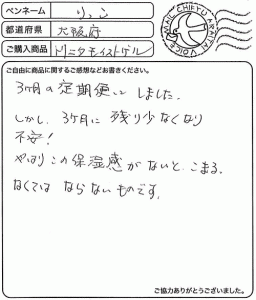 ペンネーム りっこ
都道府県 大阪府
ご購入商品 トリニティモイストゲル
MAIL CHIFYU ARAITAI VOICE
ご自由に商品に関するご感想などお書きください。
3ヶ月の定期便にしました。
しかし、3ヶ月に残り少なくなり
不安!
やはりこの保湿感がないと、こまる。
なくてはならないものです。
ご協力ありがとうございました。